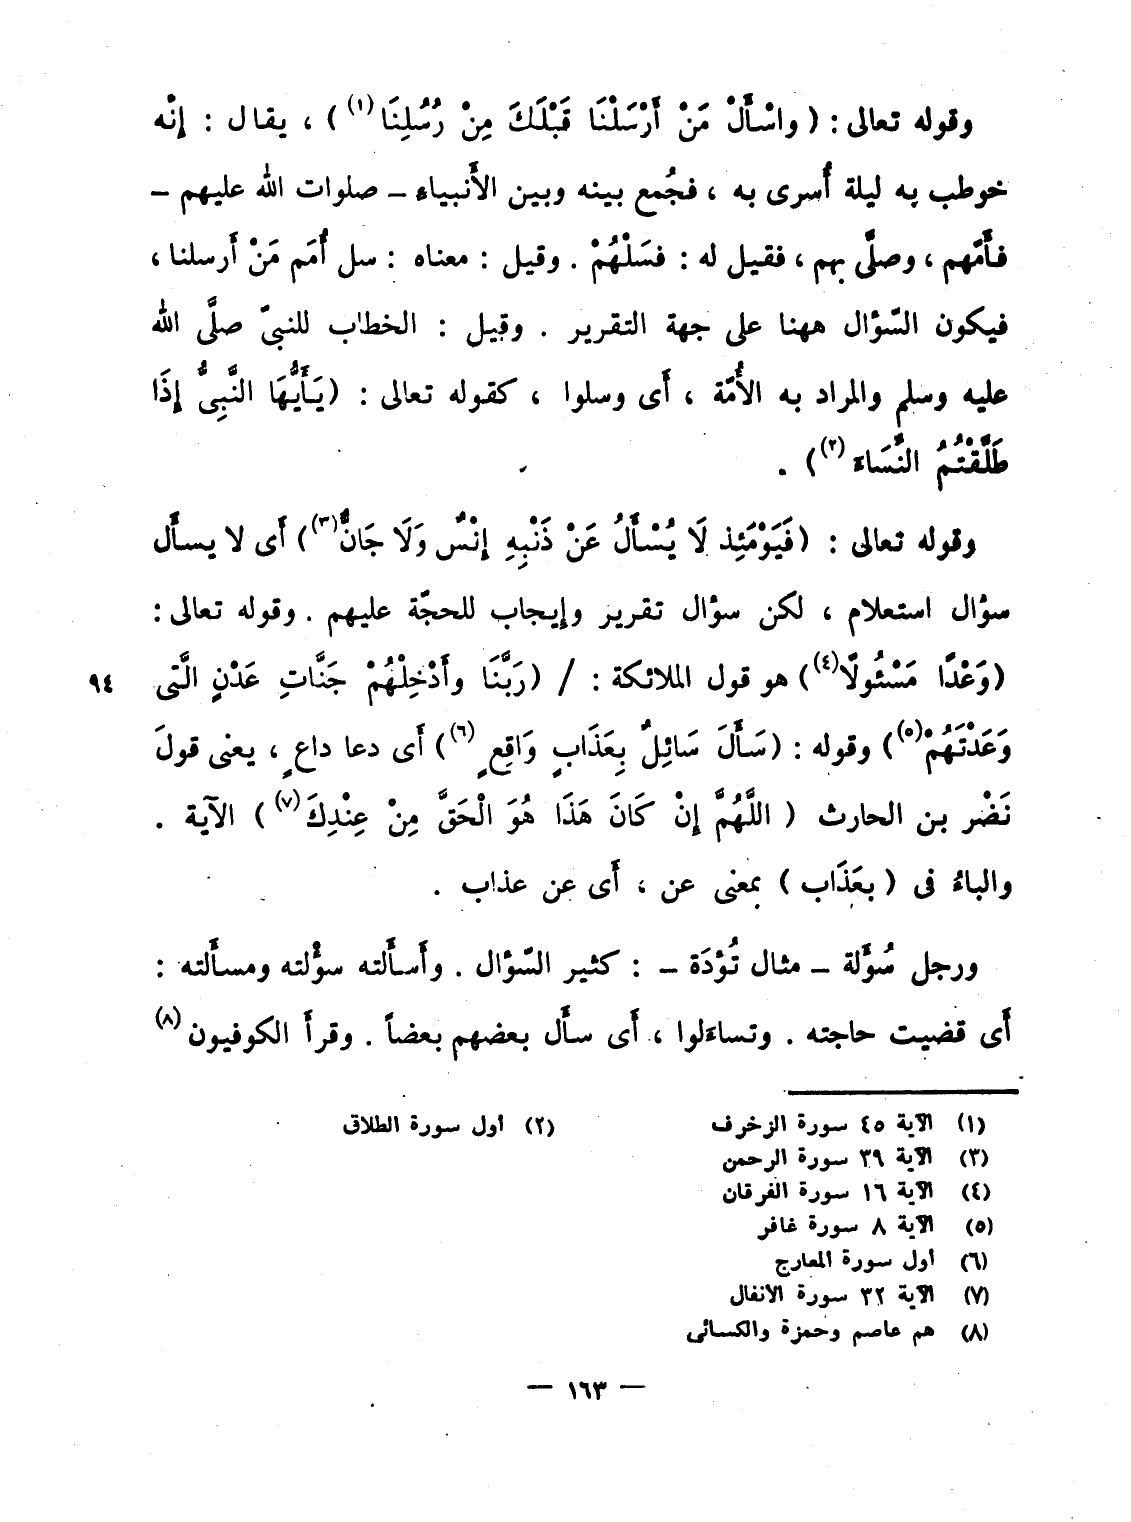 وقوله تعالى : ( واسْأَلْ مَنْ أَرْسَلْنَا قَبْلَكَ مِنْ رُسُلِنَا (١) ) ، يقال : إنْه
خوطب به ليلة أُسرى به ، فجُمع بينه وبين الأَنبياء – صلوات الله عليهم –
فأَمّهم ، وصلَّى بهم ، فقيل له : فسَلْهُمْ . وقيل : معناه : سل أُمَم مَنْ أَرسلنا ،
فيكون السّؤال ههنا على جهة التقرير . وقيل : الخطاب للنبىّ صلَّى الله
عليه وسلم والمراد به الأُمّة ، أَى وسلوا ، كقوله تعالى : (يَأَيُّهَا النَّبِىُّ إِذَا
طَلَّقْتُمُ النِّسَاءَ (٢)) .
وقوله تعالى : (فَيَوْمَئِذ لَا يُسْأَلُ عَنْ ذَنْبِهِ إِنْسٌ وَلَا جَانٌّ (٣)) أَى لا يسأَل
سؤال استعلام ، لكن سؤال تقرير وإيجاب للحجّة عليهم . وقوله تعالى :
(وَعْدًا مَسْئُولًا (٤)) هو قول الملائكة : / (رَبَّنَا وأَدْخِلْهُمْ جَنَّاتِ عَدْنٍ الَّتِى ٩٤
وَعَدْتَهُمْ (٥)) وقوله : (سَأَلَ سَائِلٌ بِعَذَابٍ وَاقِعٍ (٦)) أَى دعا داعٍ ، يعنى قولَ
نَضْر بن الحارث ( اللَّهُمَّ إِنْ كَانَ هَذَا هُوَ الْحَقَّ مِنْ عِنْدِكَ (٧) ) الآية .
والباءُ فى ( بعَذَاب ) بمعنى عن ، أَى عن عذاب .
ورجل سُؤَلة – مثال تُؤدَة – : كثير السّؤال . وأَسأَلته سؤْلته ومسأَلته :
أَى قضيت حاجته . وتساءَلوا ، أَى سأَل بعضهم بعضاً . وقرأَ الكوفيون (٨)
(١) الآية ٤٥ سورة الزخرف (٢) أول سورة الطلاق
(٣) الآية ٣٩ سورة الرحمن
(٤) الآية ١٦ سورة الفرقان
(٥) الآية ٨ سورة غافر
(٦) أول سورة المعارج
(٧) الآية ٣٢ سورة الانفال
(٨) هم عاصم وحمزة والكسائى
— ١٦٣ —